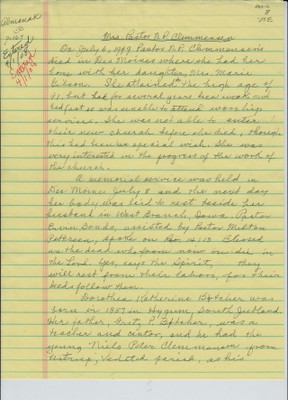 Almanak
Entered
Mrs. Pastor N.P. Clemmensen
On July 6, 1949 Pastor N.P. Clemmensen's
died in Des Moines where she had her
home with her daughter, Mrs. Marie
She attained the high age of
but had for several years been weak and
bedfast so was unable to attend worship
services. She was not able to enter
their new church before she died, though
this had been her special wish. She was
very interested in the progress of the work of
the church.
A memorial service was held in
Des Moines July 8 and the next day
her body was laid to rest beside her
husband in West Branch, Iowa. Pastor
assisted by Pastor Milton
Petersen, spoke on Rev 14:13 Blessed
are the dead who from now on die in
the Lord. Yes, says the Spirit, they
will rest from their labors, for their
deeds follow them.
Dorothea Katherine was
born in 1857 in South Jutland.
Her father, was a
teacher and cantor, and he had the
young Niels Peter Clemmensen from
parish, as his